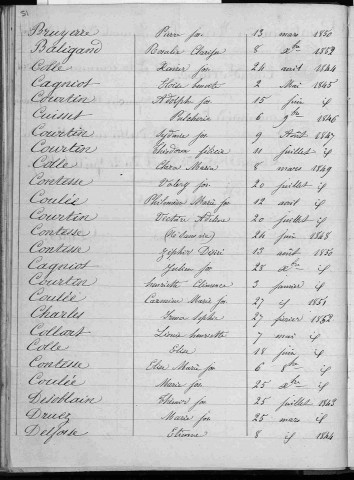 31
Bruyere Pierre jos 13 mars 1850
Baligand Rosalie 8 xbre 1852
Colle Xavier jos 24 avril 1844
Cagniot Eloïse 2 Mai 1845
Courtin Adolph jos 15 juin if
Cuisset Pulchérie 6 9bre 1846
Courtin Sydonie jos 9 Août 1847
Courtin Théodore 11 juillet if
Colle Clara Maria 8 mars 1849
Contesse Valéry jos 20 juillet if
Coulée Philomène Marie jos 12 avril if
Courtin Victoire Adelina 20 juillet if
Contesse 24 juin 1848
Contesse Zéphir Désiré 13 août 1850
Cagniot Julien jos 28 xbre if
Courtin henriette Clémence 3 janvier if
Coulée Marie jos 27 if 1851
Charles Irma Sophie 27 février 1852
Collart Léonie henriette 7 mai if
Colle Elisa 18 juin if
Contesse Elise Marie jos 6 8bre if
Coulée Marie jos 25 xbre if
Desoblain jos 25 juillet 1843
Druez Marie jos 25 mars if
Delfosse Etienne 8 if 1844